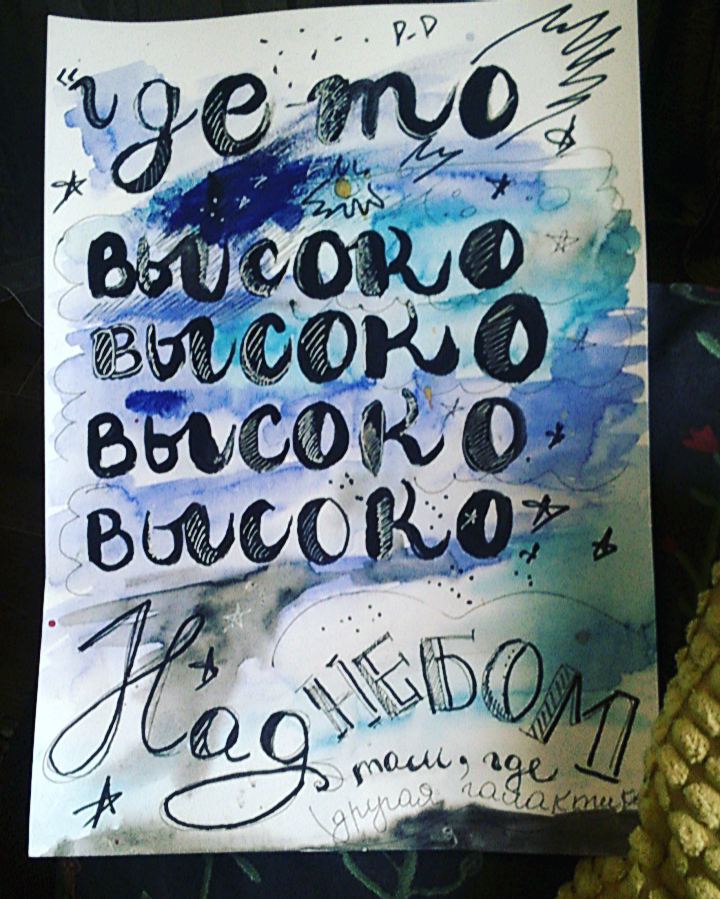 "где то
высоко
высоко
высоко
высоко
Над НЕБОМ
там, где
другая галактика